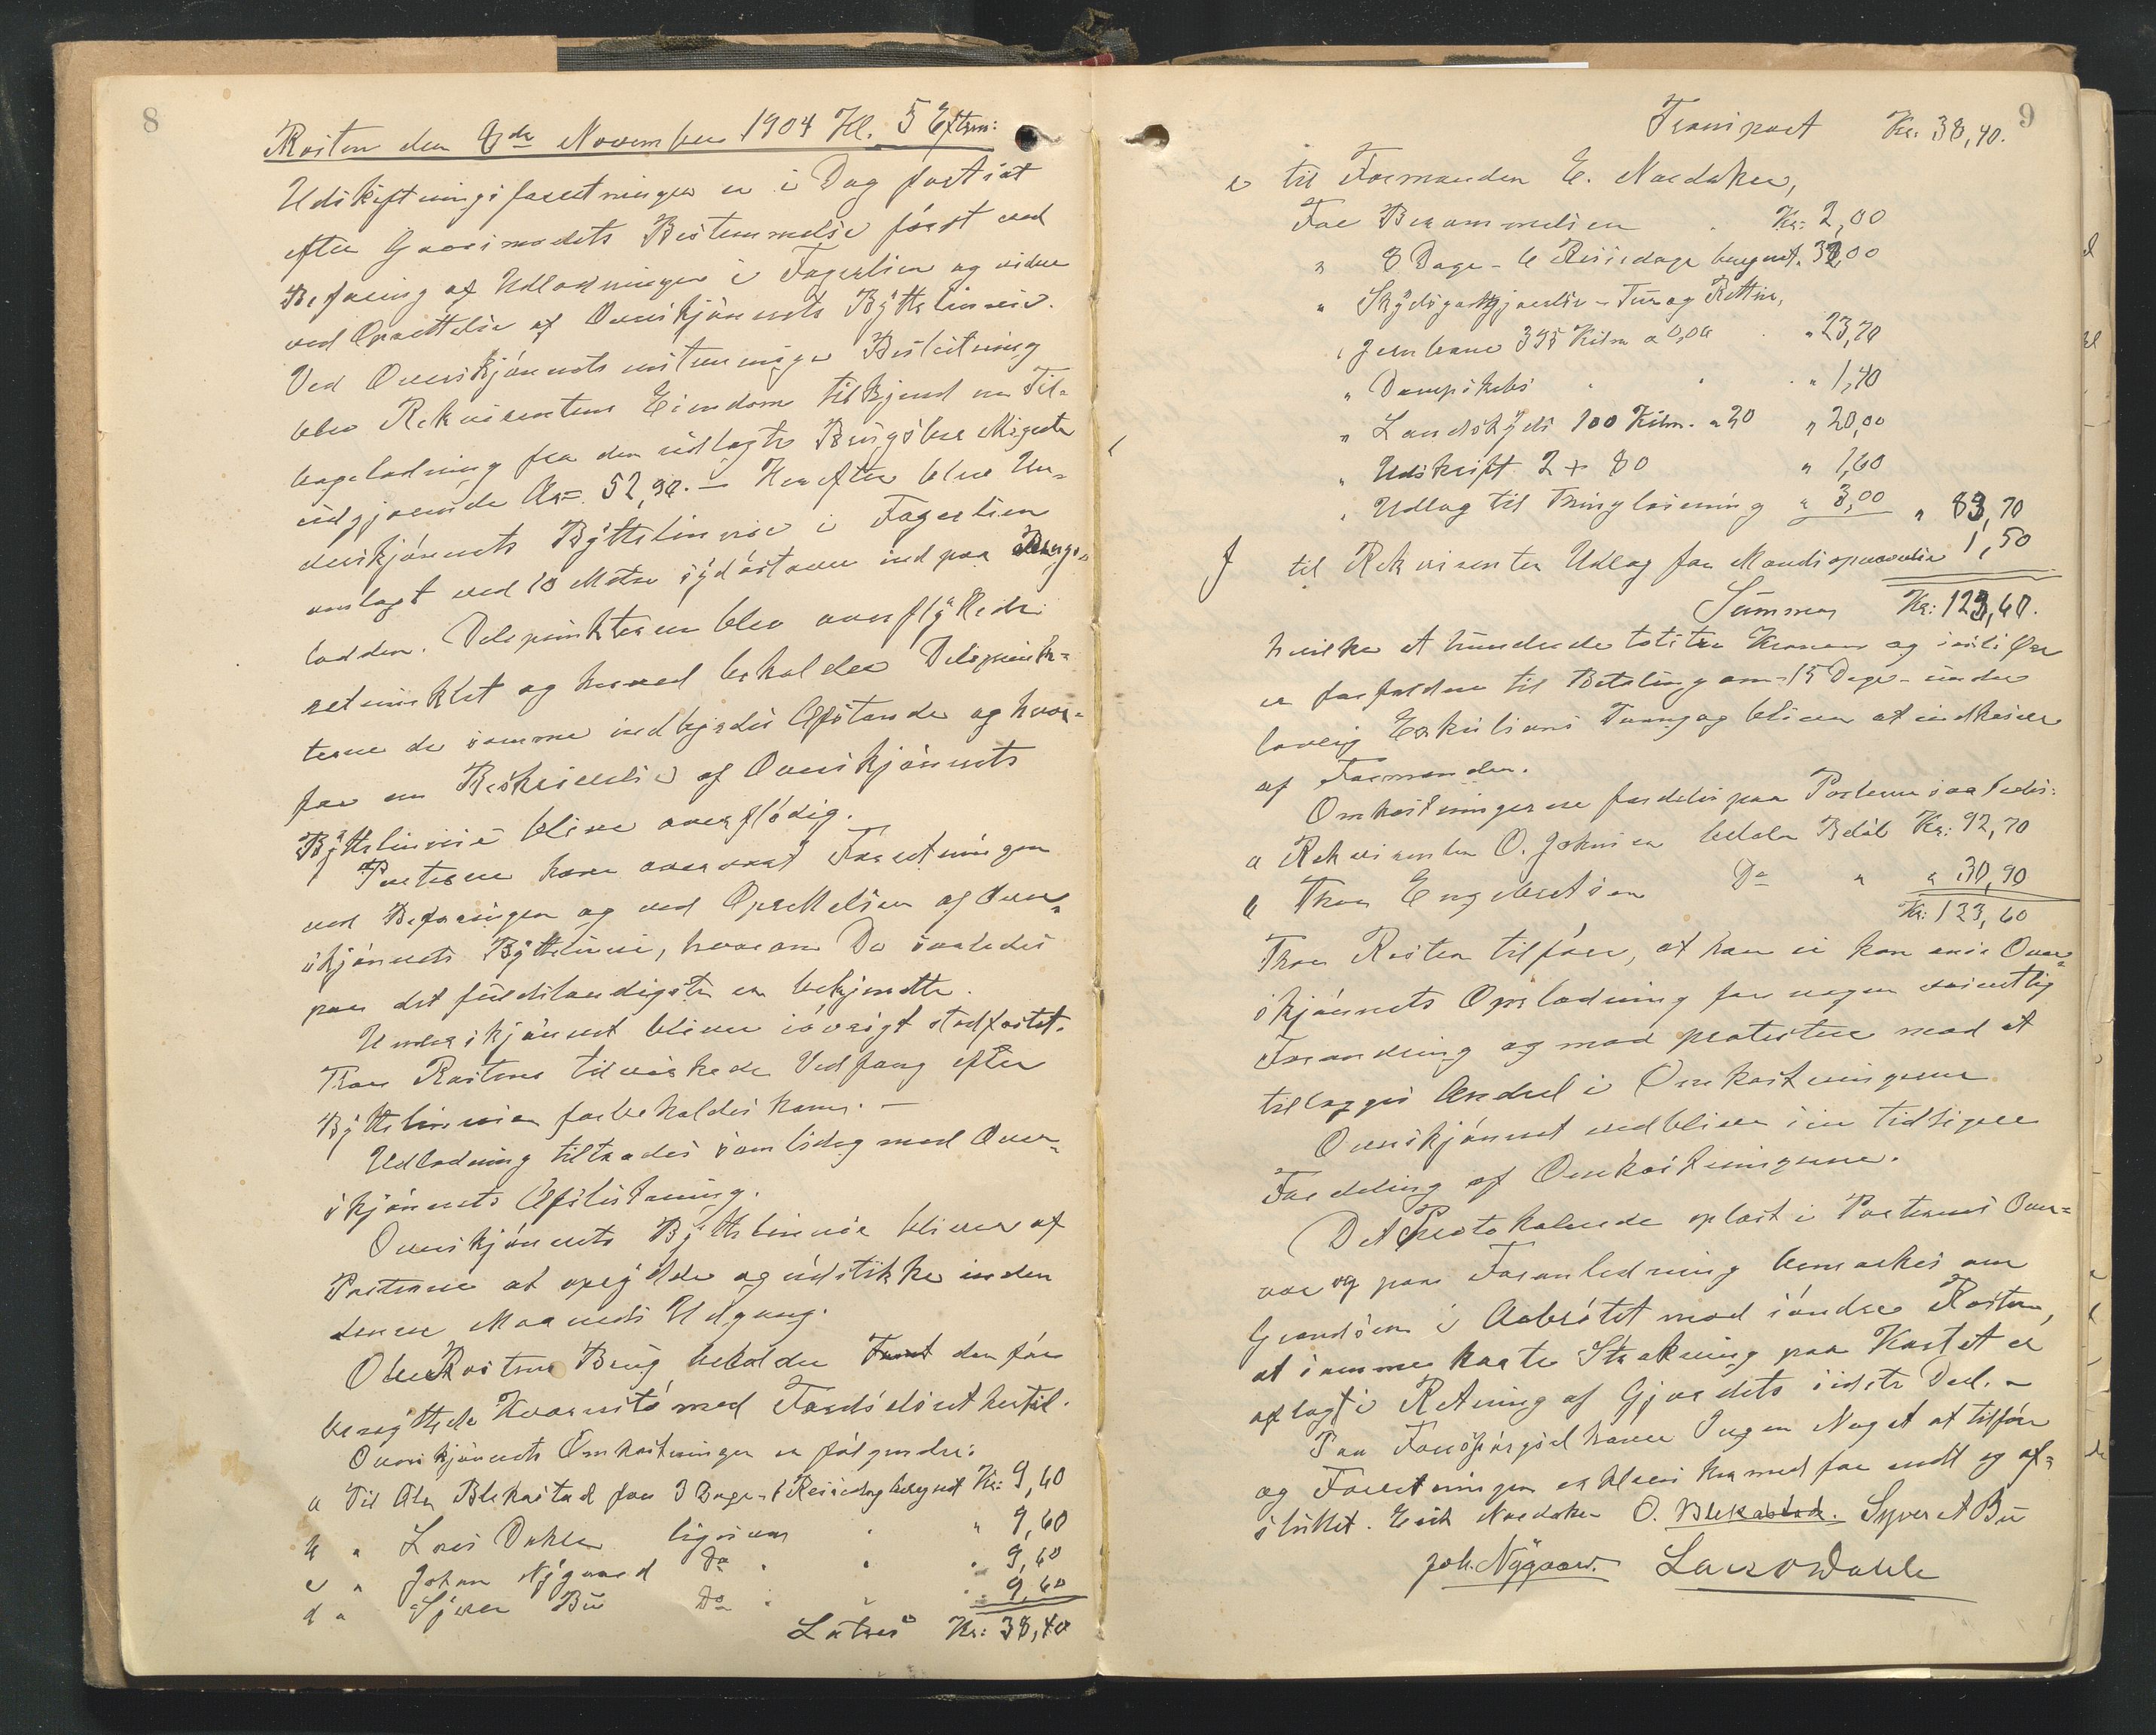 8
Rosten den 8de November 1904 Kl. 5 Eftrm:
Udskiftningsforretningen er i Dag fortsat
efter Gaarsmødets Bestemmelse først ved
Befaring af Udlodningen i Fagerlien og videre
ved Oprettelse af Overskjønnets Byttelinnie.
Ved Overskjønnets enstemmige Beslutning
blev Rekvirentens Eiendom tilkjend en Til-
bagelodning fra den udlagte
udgjørende Ar= 52,90. – Herefter blev Un-
derskjønnets Byttelinnie i Fagerlien
omlagt ved 10 Meter sydøstover ind paa
lodden. Delepunkterne blev overflyttede
retvinklet og herved beholder Delepunk-
terne de samme indbyrdes Afstande og hvor-
for en Beskrivelse af Overskjønnets
Byttelinnie bliver overflødig.
Parterne have overværet Forretningen
ved Befaringen og ved Oprettelsen af Over-
skjønnets Byttelinie, hvorom De saaledes
paa det fuldstændigste er bekjendte.
Underskjønnet bliver iøvrigt stadfæstet.
Thor Rostens tilvirkede Vedfang efter
Byttelinnien forbeholdes ham. –
Udlodning tiltrædes samtidig med Over-
skjønnets Afslutning.
Overskjønnets Byttelinnie bliver af
Parterne at oprydde og udstikke inden
denne Maaneds Udgang.
Rostens Brug beholder den før
benyttede Kværnstø med Færdselsret hertil.
Overskjønnets Omkostninger er følgende:
a Til Ole Blekastad for 3 Dage - 1 Reisedag beregnet Kr: 9,60
b " Lars Dahle ligesaa " 9,60
c " Johan Nygaard Do " 9,60
d " Syver Bu Do " 9,60
Latres Kr: 38,40
9
Transport Kr: 38,40.
e til Formanden E. Nordaker,
For Berammelsen Kr: 2,00
" 8 Dage - 6 Reisedage beregnet " 32,00
" Skydsgodtgjørelse - Tur og Rettur,
" Jernbane 395 Kilm a 0,06 " 23,70
" Dampskibs " 1,40
" Landskyds 100 Kilm. a 20 " 20,00
" Udskrift 2 + 80 " 1,60
" Udlag til Thinglæsning " 3,00 " 83,70
f til Rekvirenten Udlag for Mandsopnævnelse 1,50
Summer Kr: 123,60.
hvilke et hundrede toti tre Kroner og sexti Øre
er forfaldne til Betaling om - 15 Dage - under
lovlig Exekutions Tvang og bliver at indkræve
af Formanden.
Omkostningerne fordeles paa Parterne saaledes:
a Rekvirenten O. Johnsen betaler Beløb Kr: 92,70
b Thor Engebretsen Do " " 30,90
Kr: 123,60
Thor Rosten tilfører, at han ei kan anse Over-
skjønnets Oprlodning for nogen væsentlig
Forandring og maa protestere mod at
tillægges Andel i Omkostningerne
Overskjønnet vedbliver sin tidligere
Fordeling af Omkostningerne.
Det Protokolerede oplæst i Parternes Over-
vær og paa Foranledning bemærkes om
Grændsen i Aabrøtet mod søndre Rosten,
at samme korte Strækning paa Kartet er
aflagt i Retning af Gjærdets sidste Deel. –
Paa Forespørgsel havde Ingen Noget at tilføre
og Forretningen erklæres hermed for endt og af-
sluttet. Erik Nordaker O. Blekastad. Syver A Bu
Joh. Nygaard. Lars O Dahle